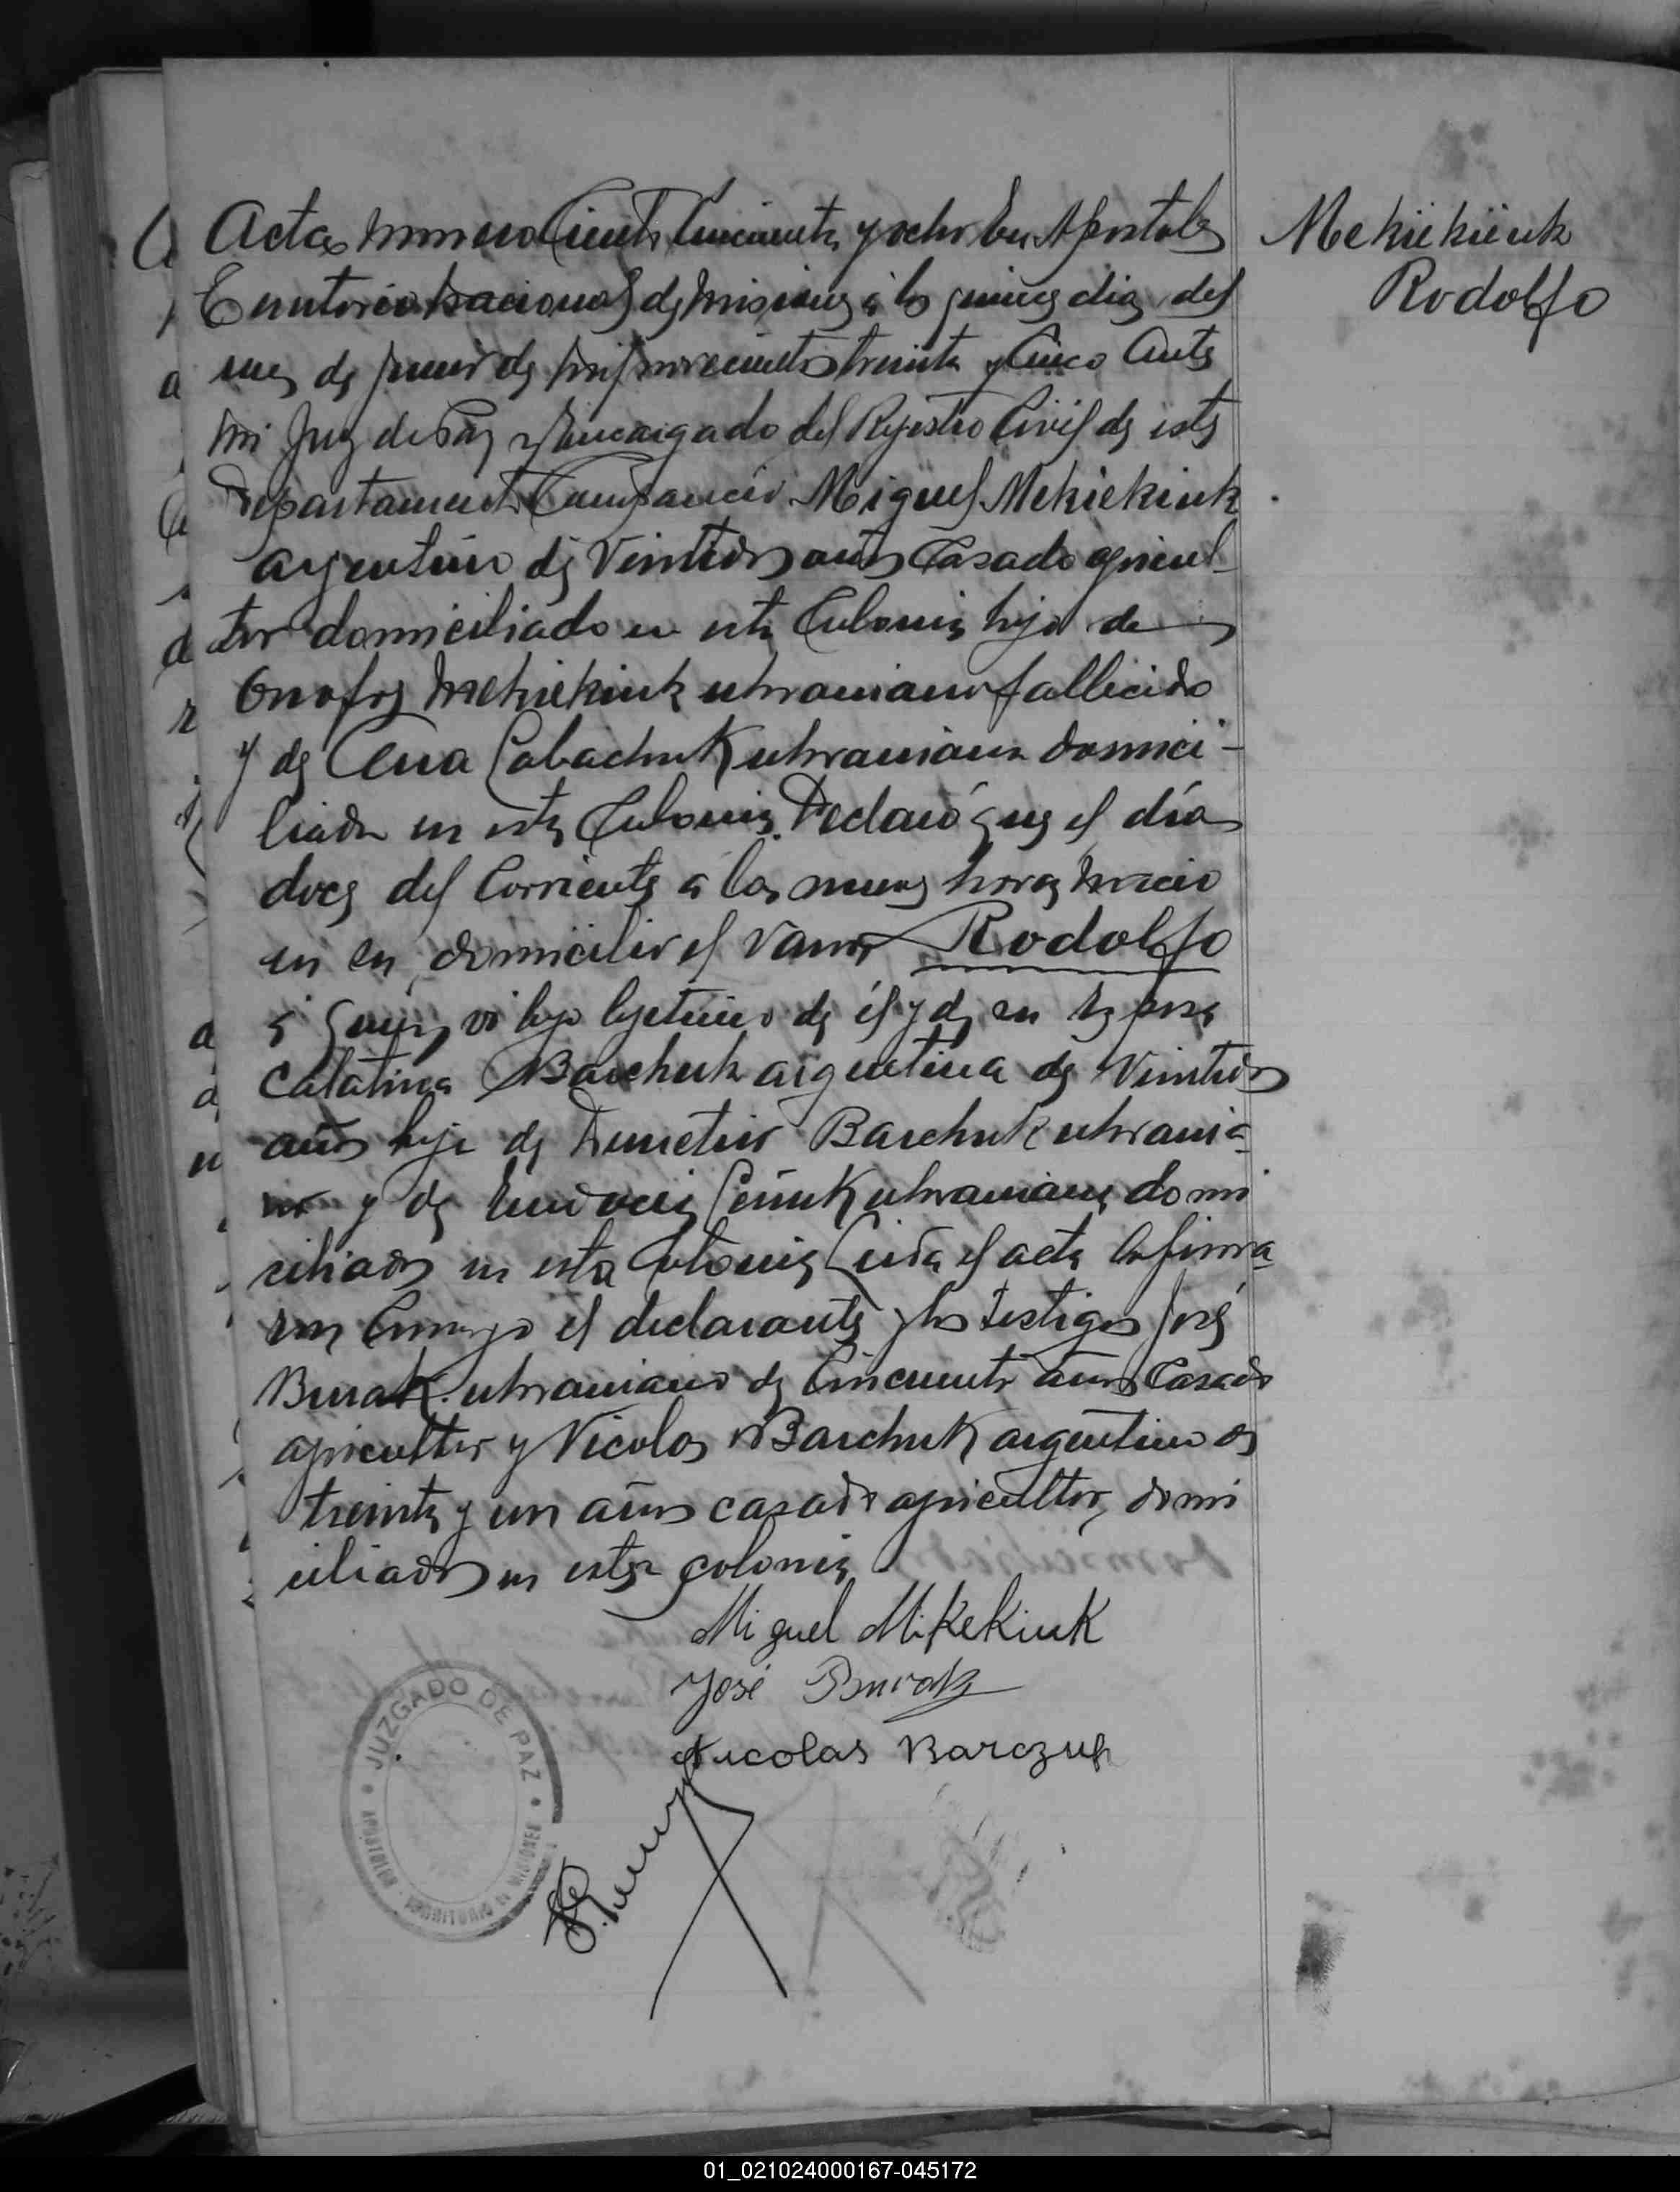 Acta numero Ciento Cincuenta y ocho En Apostoles
Territorio Nacional de Misiones á los quince dias del
mes de Junio de mil novecientos treinta y Cinco Ante
mi Juez de Paz y Encargado del Rejistro Civil de este
Departamento Compareció Miguel Mekiekiuk
argentino de Veintidos años Casado agricul-
tor domiciliado en esta Colonia hijo de
Onofre Mekiekiuk ukraniano fallecido
y de Ana Labachuk ukraniana domici-
liada en esta Colonia Declaró que el día
doce del Corriente a las nueve horas nacio
en su domicilio el Varon Rodolfo
á quien vi hijo lejitimo de él y de su Esposa
Catalina Barchuk argentina de Veintidos
años hija de Demetrio Barchuk ukrania-
no y de ukraniana domi
ciliados en esta Colonia Leida el acta la firma-
ron Conmigo el declarante y los testigos José
Burak ukraniano de Cincuenta años Casado
agricultor y Nicolas Barchuk argentino de
treinta y un años casado agricultor, domi
ciliados en esta colonia
Miguel MikeKiuk
José Burak
Nicolas Barczuk
Mekiekiuk
Rodolfo
JUZGADO DE PAZ
APOSTOLES - MISIONES
01_021024000167-045172